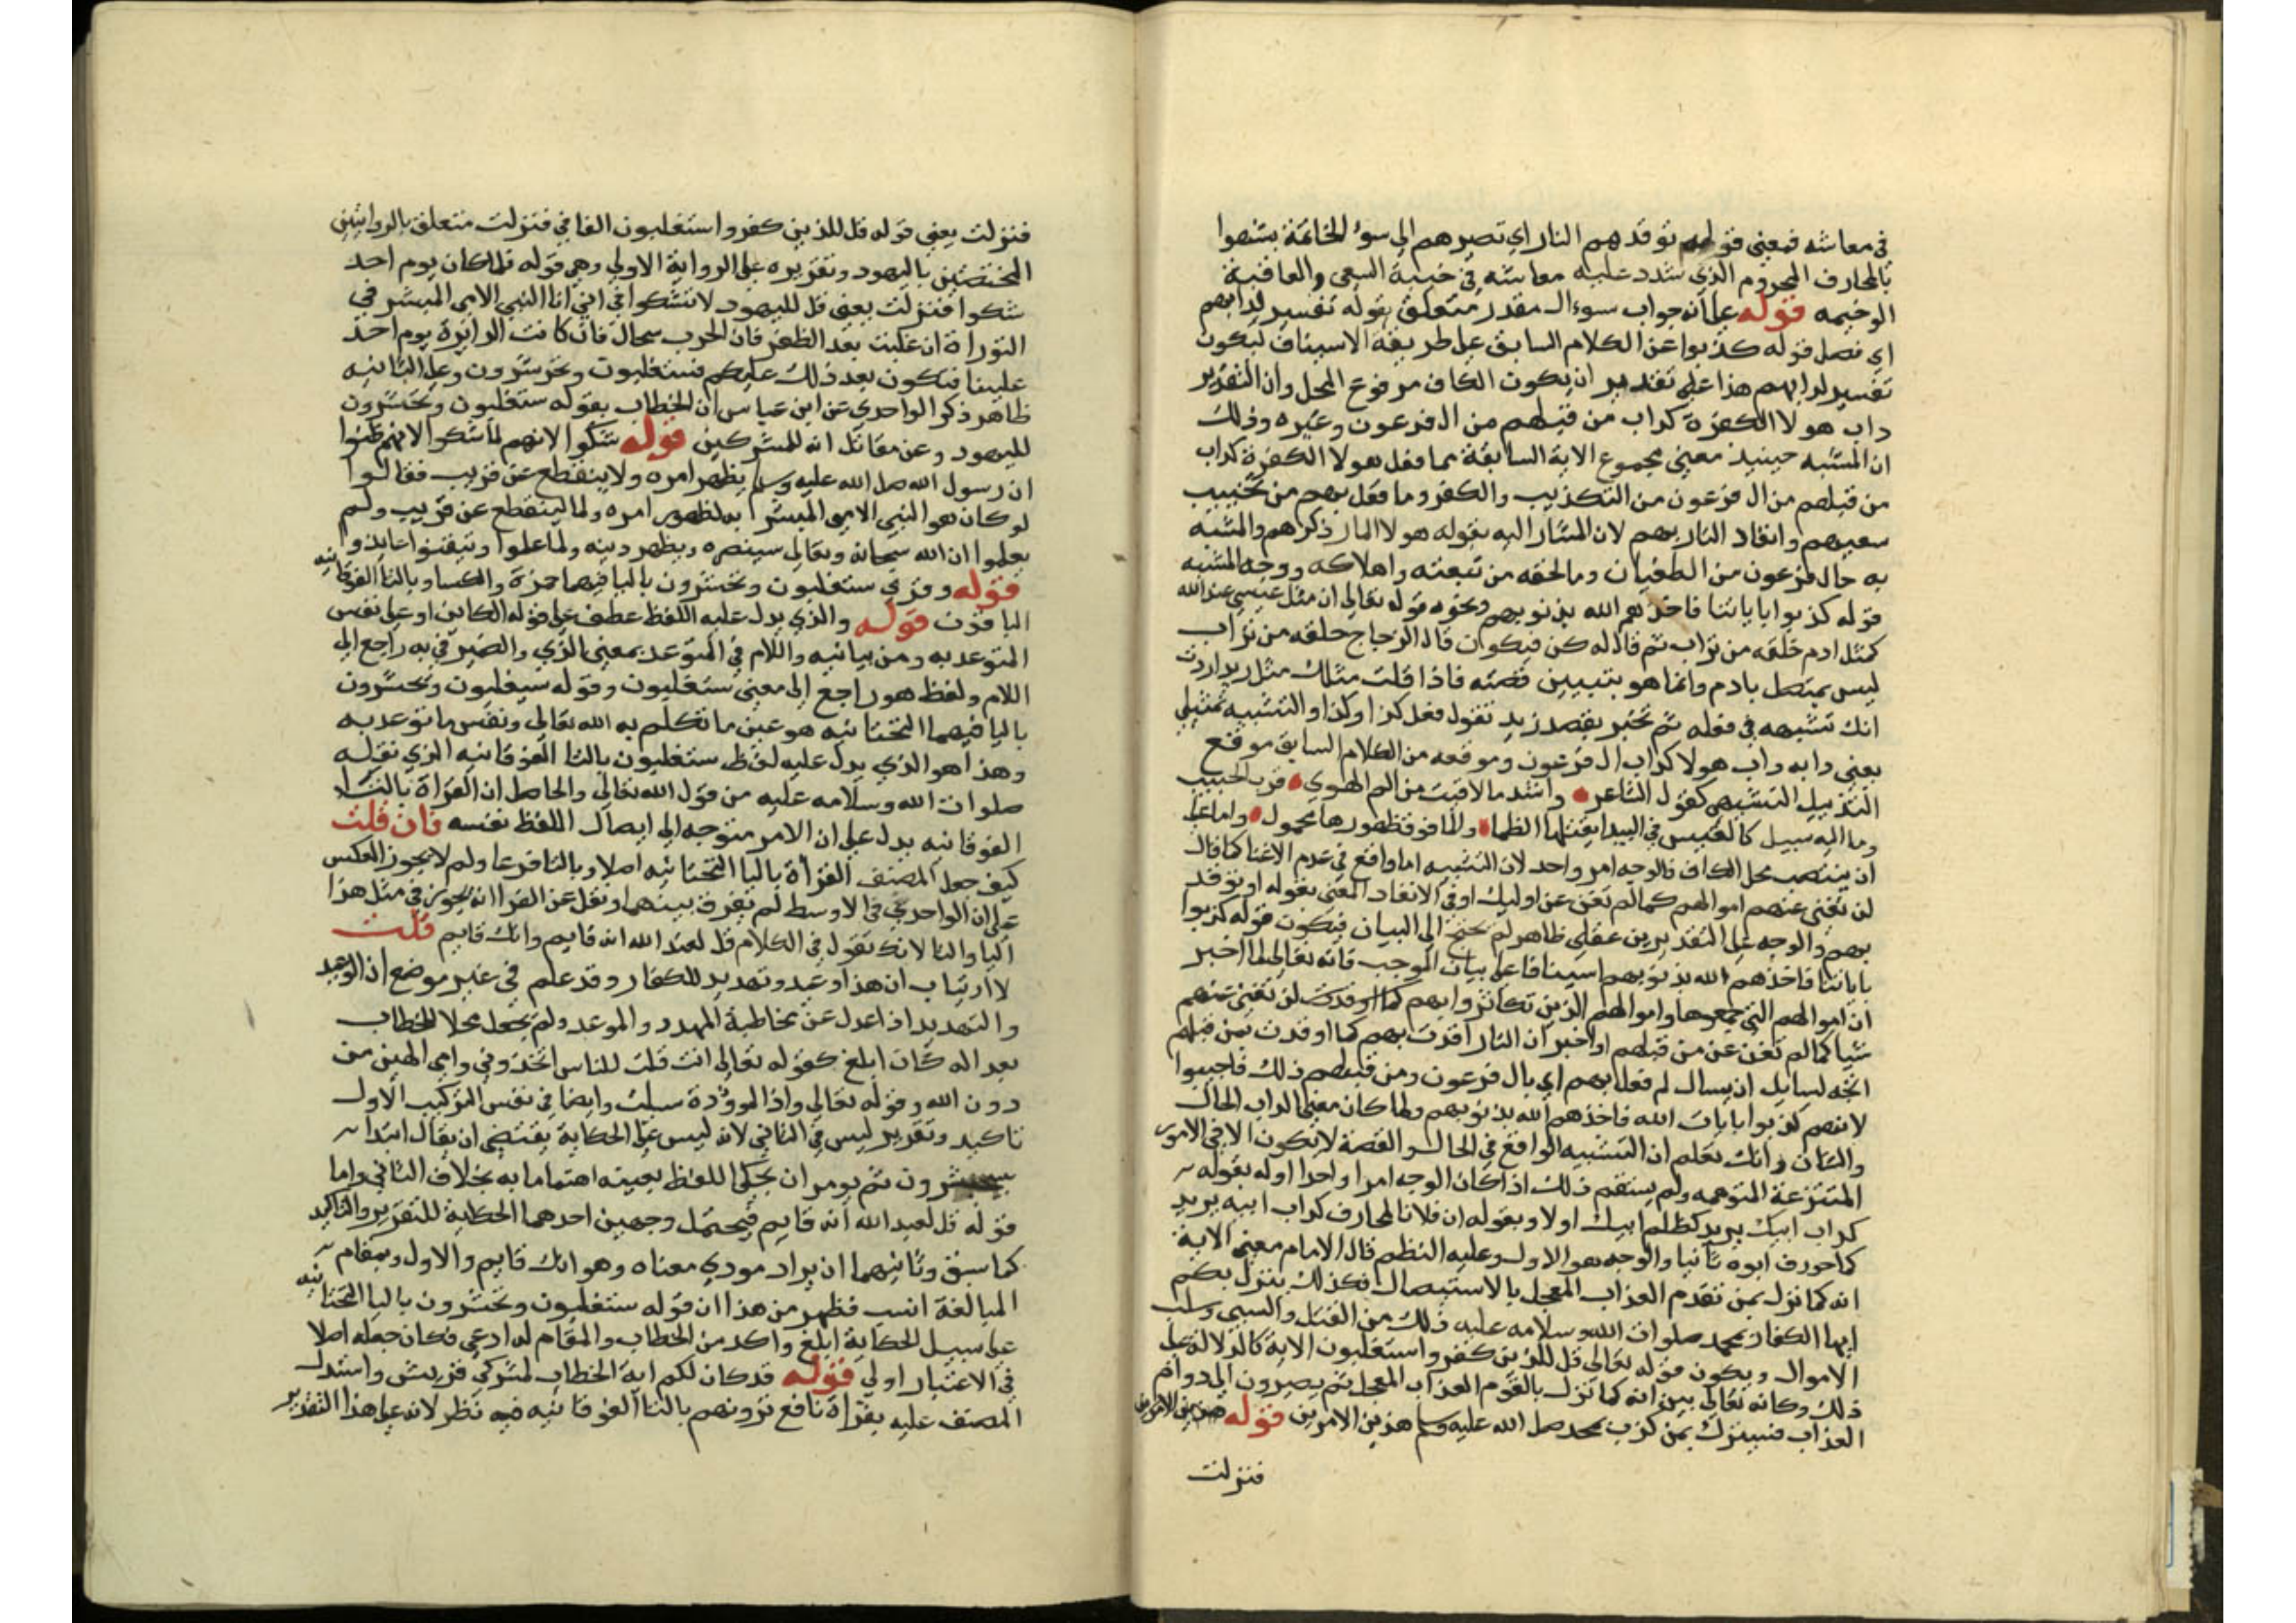 في معاشه فمعنى قوله توقد بهم النار اي تصيرهم الى سوء الخاتمة بشبهوا
بالمحارف المحروم الذي شدد عليه معاشه في خيبة السعي والعاقبة
الوخيمه قوله على انه جواب سوءال مقدر متعلق بقوله تفسير لدابهم
اي فصل قوله كذبوا عن الكلام السابق على طريقة الاسيناف ليكون
تفسير لدابهم هذا على تقدير ان يكون الكاف مرفوع المحل وان التقدير
داب هولا الكفرة كداب من قبلهم من ال فرعون وغيره وذلك
ان المشبه حينيذ معنى مجموع الاية السابقة مما فعل هولا الكفرة كداب
من قبلهم من ال فرعون من التكذيب والكفر وما فعل بهم من تخييب
سعيهم وانقاد النار بهم لان المشار اليه بقوله هولا المار ذكرهم والمشبه
به حال فرعون من الطغيان وما لحقه من تبعته واهلاكه ووجه الشبه
قوله كذبوا باياتنا فاخذهم الله بذنوبهم ونحوه قوله تعالى ان مثل عيسى عند الله
كمثل ادم خلقه من تراب ثم قال له كن فيكون قال الزجاج خلقه من تراب
ليس بمتصل بادم وانما هو بتبيين قصته فاذا قلت مثلك مثل زيد اردت
انك تشبهه في فعله ثم تخبر بقصد زيد تقول فعل كذا وكذا والتشبيه تمثيلي
يعني دابه داب هولا كداب ال فرعون وموقعه من الكلام السابق موقع
التذييل التشبيهي كقول الشاعر واشد ما لاقيت من الم الهوي قرب الحبيب
وما اليه سبيل كالعيس في البيدا يقتلها الظما والما فوق ظهورها محمول واما على
ان ينتصب محل الكاف فالوجه امر واحد لان التشبيه اما واقع في عدم الاغنا كما قال
لن تغني عنهم اموالهم كما لم تغن عن اوليك او في الانقاد المعنى بقوله او توقد
بهم والوجه على التقديرين عقلي ظاهر لم يحتج الى البيان فيكون قوله كذبوا
باياتنا فاخذهم الله بذنوبهم اسينافا على بيان الموجب فانه تعالى لما اخبر
ان اموالهم التي جمعوها واموالهم الذين تكاثروا بهم كما اوقدت لن تغني عنهم
شيا كما لم تغن عن من قبلهم او اخبر ان النار اقدت بهم كما اوقدت بمن قبلهم
اتجه لسايل ان يسال لم فعل بهم اي بال فرعون ومن قبلهم ذلك فاجيبوا
لانهم كذبوا بايات الله فاخذهم الله بذنوبهم ولما كان معنى الداب الحال
والشان وانك تعلم ان التشبيه الواقع في الحال والقصة لا يكون الا في الامور
المنتزعة المتوهمه ولم يستقم ذلك اذا كان الوجه امرا واحدا اوله بقوله
كداب ابيك يريد كظلم ابيك اولا وبقوله ان فلانا لمحارف كداب ابيه يريد
كما حورف ابوه ثانيا والوجه هو الاول وعليه النظم قال الامام معنى الاية
انه كما نزل بمن تقدم العذاب المعجل بالاستيصال فكذلك ينزل بكم
ايها الكفار بمحمد صلوات الله وسلامه عليه ذلك من القتل والسبي وسلب
الاموال ويكون قوله تعالى قل للذين كفروا ستغلبون الاية كالدلالة على
ذلك وكانه تعالى بين انه كما نزل بالقوم العذاب المعجل ثم يصيرون الى دوام
العذاب فسينزل بمن كذب محمد صلى الله عليه وسلم هذين الامرين قوله هذين الامرين
فنزلت
فنزلت يعني قوله قل للذين كفروا ستغلبون الفا في فنزلت متعلق بالروايتين
المختصتين باليهود وتقريره على الرواية الاولى وهي قوله فلما كان يوم احد
شكوا فنزلت يعني قل لليهود لا تشكوا في اني انا النبي الامي المبشر في
التوراة ان غلبت بعد الظفر فان الحرب سجال فان كانت الدايرة يوم احد
علينا فيكون بعد ذلك عليكم فستغلبون وتحشرون وعلى الثانيه
ظاهر ذكر الواحدي عن ابن عباس ان الخطاب بقوله ستغلبون وتحشرون
لليهود وعن مقاتل انه للمشركين قوله شكوا لانهم لما شكوا لانهم ظنوا
ان رسول الله صلى الله عليه وسلم يظهر امره ولا ينقطع عن قريب فقالوا
لو كان هو النبي الامي المبشر به لظهر امره ولما لينقطع عن قريب ولم
يعلموا ان الله سبحانه وتعالى سينصره ويظهر دينه ولما علموا وتيقنوا عاندوا
قوله وقري ستغلبون وتحشرون باليا فيهما حمزة والكسا وبالتا الفوقانيه
الباقون قوله والذي يدل عليه اللفظ عطف على قوله الكاين او على نفس
المتوعد به ومن بيانيه واللام في المتوعد بمعنى الذي والضمير في به راجع الى
اللام ولفظ هو راجع الى معنى ستغلبون وقوله سيغلبون ويحشرون
باليا فيهما التحتانيه هو عين ما تكلم به الله تعالى ونفس ما توعد به
وهذا هو الذي يدل عليه لفظ ستغلبون بالتا الفوقانيه الذي نقله
صلوات الله وسلامه عليه من قول الله تعالى والحاصل ان القراة بالتا
الفوقانيه يدل على ان الامر متوجه الى ايصال اللفظ نفسه فان قلت
كيف جعل المصنف القراة باليا التحتانيه اصلا وبالتا فرعا ولم لا يجوز العكس
على ان الواحدي في الاوسط لم يفرق بينهما ونقل عن الفرا انه يجوز في مثل هذا
اليا والتا لانك تقول في الكلام قل لعبد الله انه قايم وانك قايم قلت
لا ارتياب ان هذا وعيد وتهديد للكفار وقد علم في غير موضع ان الوعيد
والتهديد اذا عدل عن مخاطبة المهدد والموعد ولم يجعل محلا للخطاب
بعد اله كان ابلغ كقوله تعالى انت قلت للناس اتخذوني وامي الهين من
دون الله وقوله تعالى واذا الموؤدة سيلت وايضا في نفس التركيب الاول
تاكيد وتقرير ليس في الثاني لانه ليس على الحكاية يقتضي ان يقال ابتدا
سيحشرون ثم يومر ان يحكى اللفظ بعينه اهتماما به بخلاف الثاني واما
قوله قل لعبد الله انه قايم فيحتمل وجهين احدهما الحكاية للتقرير والتاكيد
كما سبق وثانيهما ان يراد مودي معناه وهو انك قايم والاول وبمقام
المبالغة انسب فظهر من هذا ان قوله ستغلبون وتحشرون باليا التحتانيه
على سبيل الحكاية ابلغ واكد من الخطاب والمقام له ادعى فكان جعله اصلا
في الاعتبار اولى قوله قد كان لكم اية الخطاب لمشركي قريش واستدل
المصنف عليه بقراة نافع ترونهم بالتا الفوقانيه فيه نظر لانه على هذا التقدير